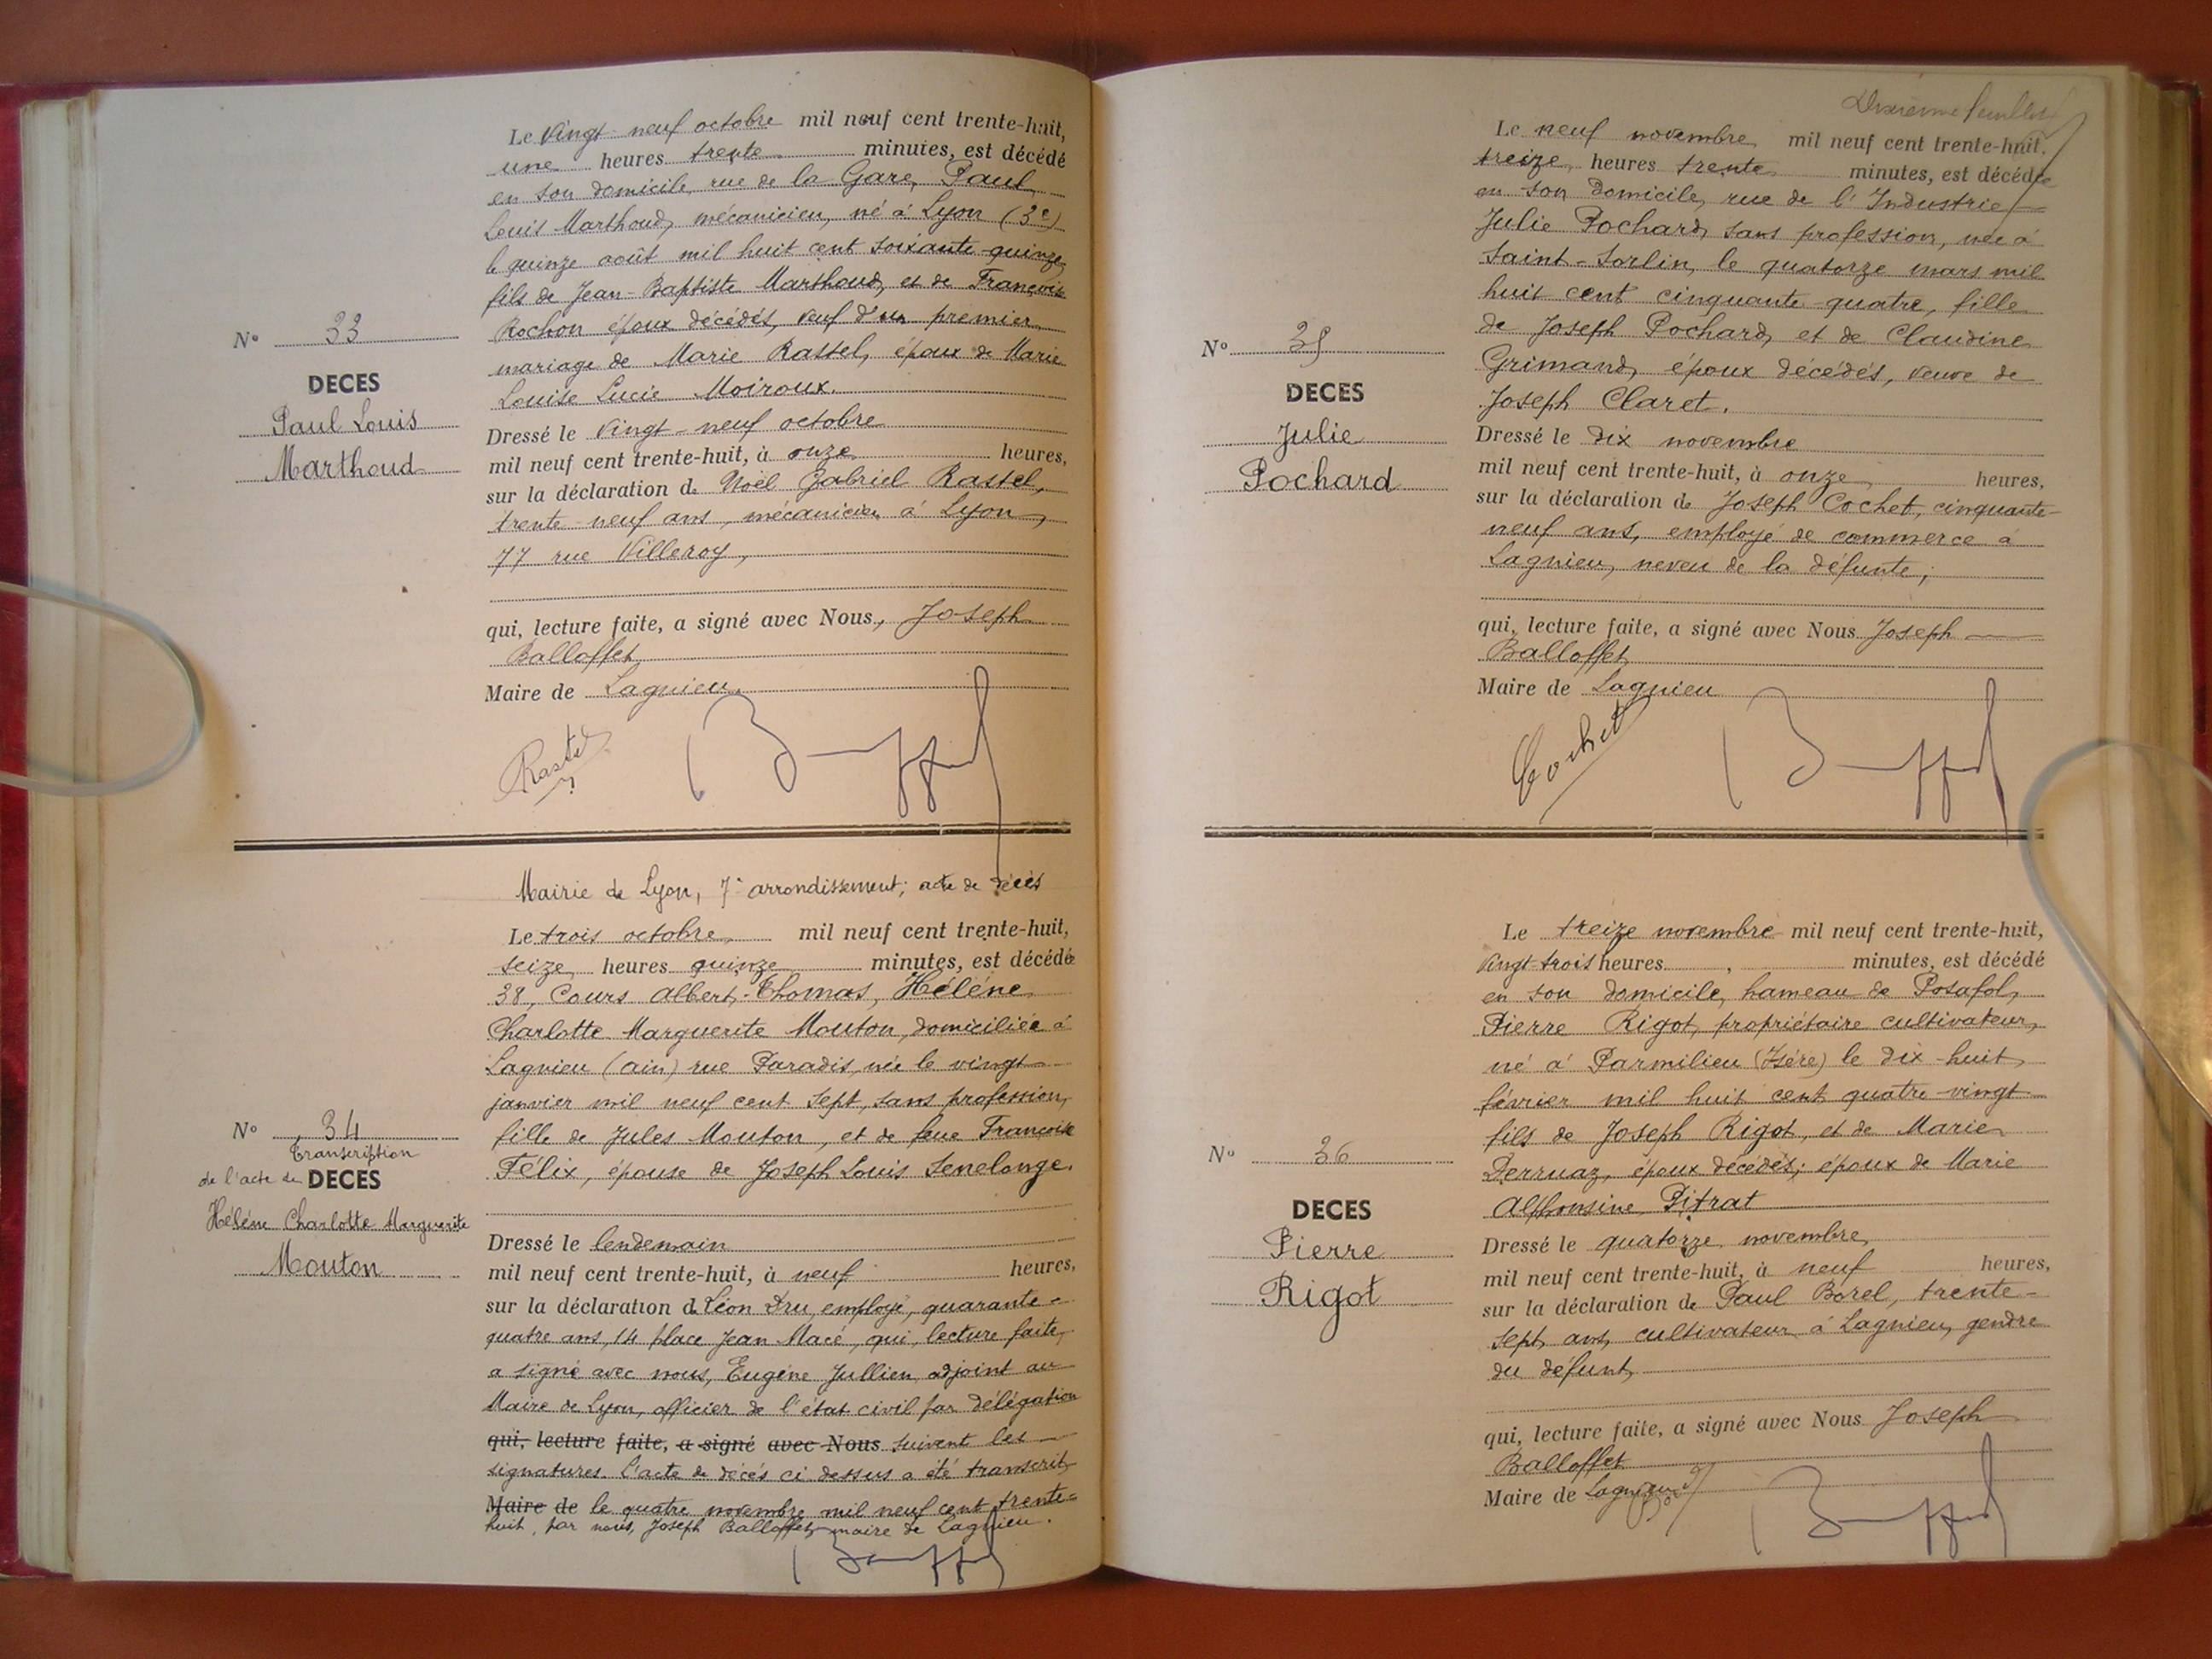 Le Vingt-neuf octobre mil neuf cent trente-huit,
une heures trente minutes, est décédé
en son domicile, rue de la Gare, Paul
Louis Marthoud, mécanicien, né à Lyon (3e)
le quinze août mil huit cent soixante-quinze,
fils de Jean-Baptiste Marthoud, et de Françoise
Rochon époux décédés, veuf d'un premier
mariage de Marie Rastel, époux de Marie
Louise Lucie Moiroux.
Dressé le Vingt-neuf octobre
mil neuf cent trente-huit, à onze heures,
sur la déclaration de Noël Gabriel Rastel,
trente-neuf ans, mécanicien à Lyon,
77 rue Villeroy,
qui, lecture faite, a signé avec Nous, Joseph
Balloffet
Maire de Lagnieu.
Rastel
N° 33
DECES
Paul Louis
Marthoud
Mairie de Lyon, 7e arrondissement; acte de décès
Le trois octobre mil neuf cent trente-huit,
seize heures quinze minutes, est décédée
38, Cours Albert-Thomas, Hélène
Charlotte Marguerite Mouton, domiciliée à
Lagnieu (ain) rue Paradis, née le vingt
janvier mil neuf cent sept, sans profession,
fille de Jules Mouton, et de feue Françoise
Félix, épouse de Joseph Louis Senelonge.
Dressé le lendemain
mil neuf cent trente-huit, à neuf heures,
sur la déclaration de Léon Dru, employé, quarante-
quatre ans, 14 place Jean Macé, qui, lecture faite,
a signé avec nous, Eugène Jullien, adjoint au
Maire de Lyon, officier de l'état civil par délégation
qui, lecture faite, a signé avec Nous suivent les
signatures. L'acte de décès ci dessus a été transcrit
Maire de le quatre novembre mil neuf cent trente-
huit, par nous, Joseph Balloffet, maire de Lagnieu.
N° 34
Transcription
de l'acte de DECES
Hélène Charlotte Marguerite
Mouton
Le neuf novembre mil neuf cent trente-huit,
treize heures trente minutes, est décédée
en son domicile, rue de l'Industrie
Julie Pochard, sans profession, née à
Saint-Sorlin, le quatorze mars mil
huit cent cinquante-quatre, fille
de Joseph Pochard, et de Claudine
Grimand, époux décédés, veuve de
Joseph Claret.
Dressé le dix novembre
mil neuf cent trente-huit, à onze heures,
sur la déclaration de Joseph Cochet, cinquante-
neuf ans, employé de commerce à
Lagnieu, neveu de la défunte;
qui, lecture faite, a signé avec Nous Joseph
Balloffet
Maire de Lagnieu
Cochet
N° 35
DECES
Julie
Pochard
Le treize novembre mil neuf cent trente-huit,
Vingt-trois heures, minutes, est décédé
en son domicile, hameau de Posafol,
Pierre Rigot, propriétaire cultivateur,
né à Parmilieu (Isère) le dix-huit
février mil huit cent quatre-vingt
fils de Joseph Rigot, et de Marie
Derruaz, époux décédés; époux de Marie
Alphonsine Pitrat
Dressé le quatorze novembre
mil neuf cent trente-huit, à neuf heures,
sur la déclaration de Paul Borel, trente-
sept ans, cultivateur à Lagnieu, gendre
du défunt,
qui, lecture faite, a signé avec Nous Joseph
Balloffet
Maire de Lagnieu
N° 36
DECES
Pierre
Rigot